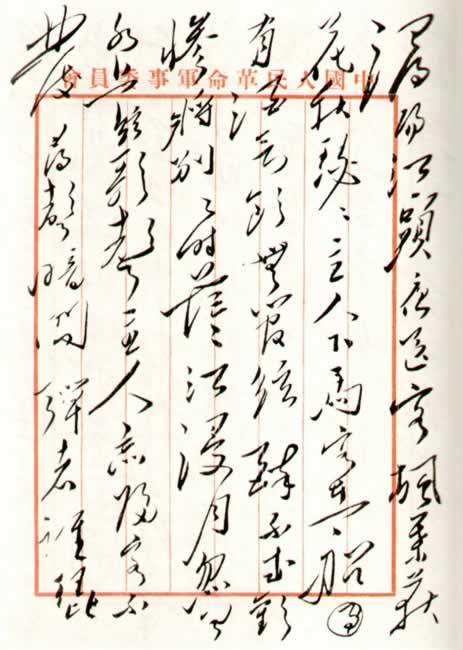 中國人民革命軍事委員會
潯陽江頭夜送客楓葉荻
花秋瑟瑟主人下馬客在船
酒欲飲無管絃醉不成歡
慘將別別時茫茫江浸月忽聞
水上琵琶聲主人忘歸客不
發尋聲暗問彈者誰琵